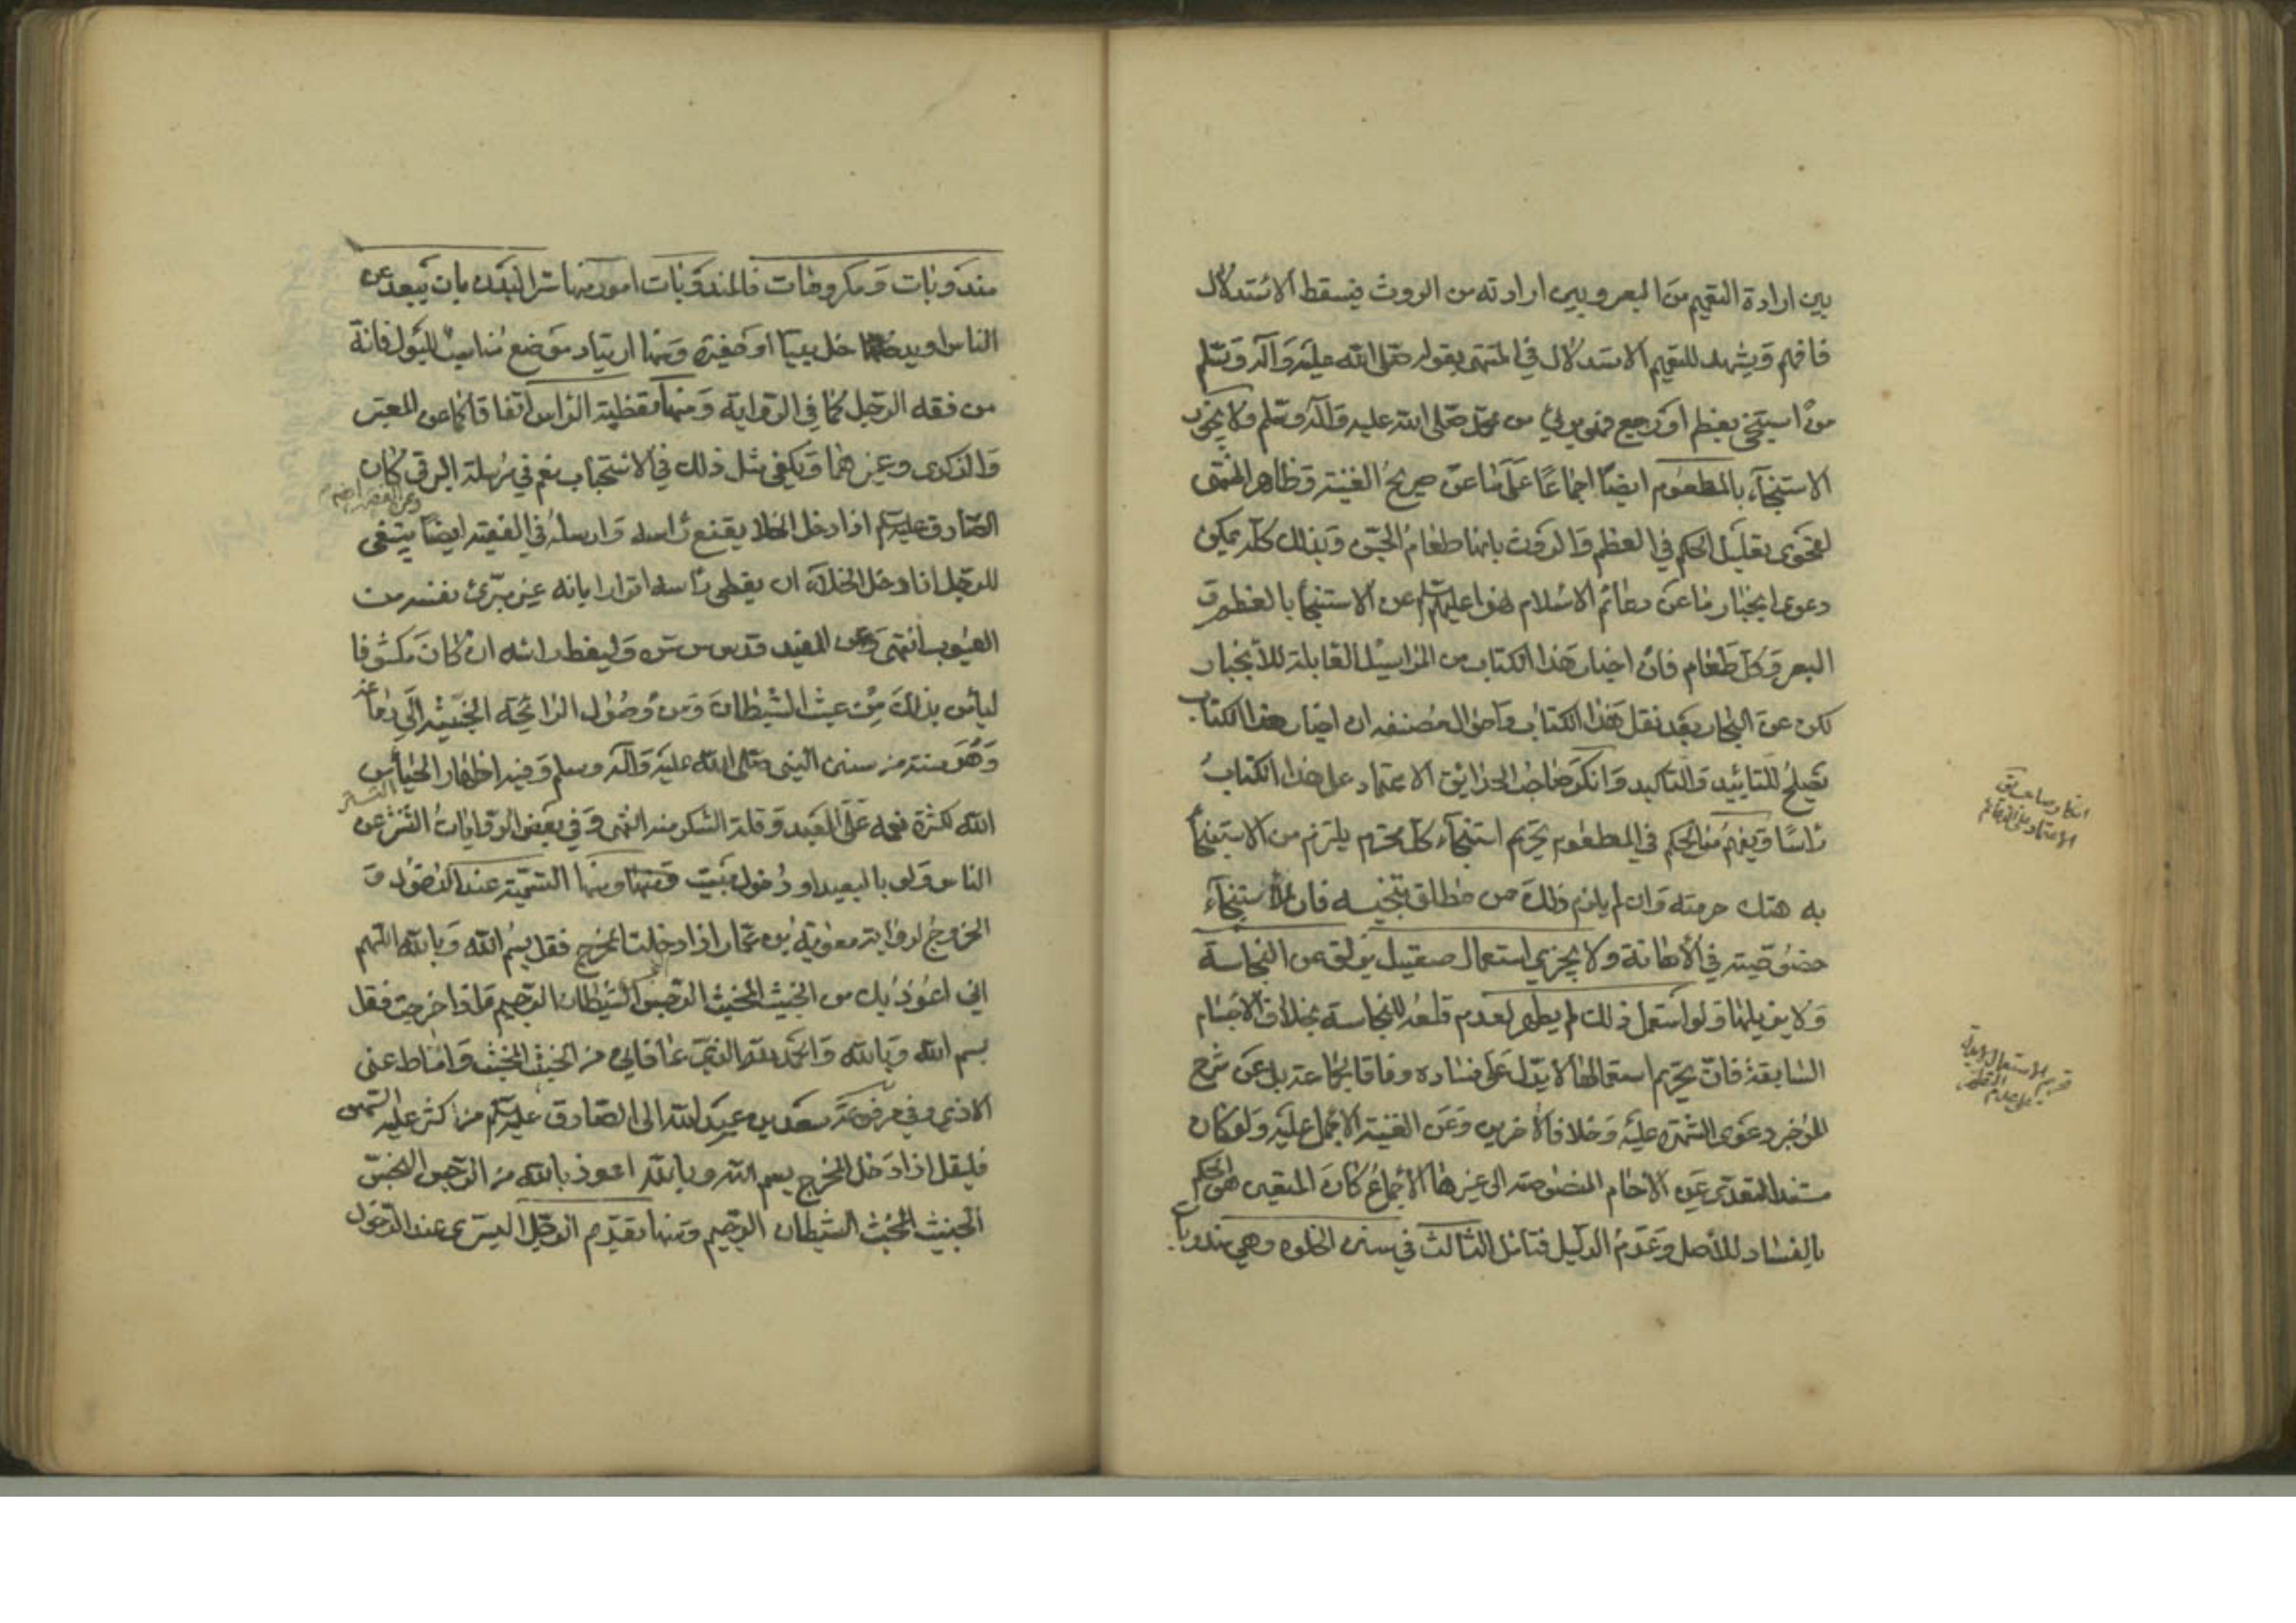 بين ارادة التعميم من البعر وبين ارادته من الروث فيسقط الاستدلال
فافهم ويشهد للتعميم الاستدلال في المنتهى بقوله صلى الله عليه وآله وسلم
من استنجى بعظم او رجيع فهو برئ من محمد صلى الله عليه وآله وسلم ولا يجوز
الاستنجاء بالمطعوم ايضا اجماعا على ما عن صريح الغنية وظاهر المنتهى
لفحوى تعليل الحكم في العظم والروث بانها طعام الجن وبذلك كله يمكن
دعوى انجبار ما عن دعائم الاسلام نهوا عليهم السلام عن الاستنجاء بالعظم و
البعر وكل طعام فان اخبار هذا الكتاب من المراسيل القابلة للانجبار
لكن عن البحار بعد نقل هذا الكتاب واحوال مصنفه ان اخبار هذا الكتاب
تصلح للتاييد والتاكيد وانكر صاحب الحدايق الاعتماد على هذا الكتاب
راسا ويفهم من الحكم في المطعوم تحريم استنجاء كل محترم يلزم من الاستنجاء
به هتك حرمته وان لم يلزم ذلك من مطلق تنجيسه فان للاستنجاء
خصوصية في الاهانة ولا يجزي استعمال صقيل يزلق عن النجاسة
ولا يزيلها ولو استعمل ذلك لم يطهر لعدم قلعه للنجاسة بخلاف الاجسام
السابقة فان تحريم استعمالها لا يدل على فساده وفاقا لجماعة بل عن شرح
الموجز دعوى الشهرة عليه وخلافا لاخرين وعن الغنية الاجماع عليه ولو كان
مستند التعدي عن الاحجام المنصوصة الى غيرها الاجماع كان المتعين هو الحكم
بالفساد للاصل وعدم الدليل فتامل الثالث في سنن الخلوة وهي مندوبات
انكار صاحب الحدائق
الاعتماد على الدعائم
تحريم الاستعمال لا يدل
على عدم التطهير
مندوبات ومكروهات فالمندوبات امور منها ستر البدن بان يبعد عن
الناس او يدخل بيتا او حفيرة ومنها ارتياد موضع مناسب للبول فانه
من فقه الرجل كما في الرواية ومنها تغطية الراس اتفاقا كما عن المعتبر
والذكرى وغيرهما ويكفي مثل ذلك في الاستحباب نعم في مرسلة البرقي كان
الصادق عليه السلام اذا دخل الخلا يقنع راسه وارسله في الفقيه ايضا ينبغي
للرجل اذا دخل الخلاء ان يغطي راسه اقرارا بانه غير مبرئ نفسه من
العيوب انتهى وعن المفيد قدس سره وليغط راسه ان كان مكشوفا
ليأمن بذلك من عبث الشيطان ومن وصول الرائحة الخبيثة الى دماغه
وهو سنة من سنن النبي صلى الله عليه وآله وسلم وفيه اظهار الحياء من
الله لكثرة نعمه على العبد وقلة الشكر منه انتهى وفي بعض الروايات التستر عن
الناس ولو بالبعيد او دخول بيت ومنها التسمية عند الدخول و
الخروج لرواية معوية بن عمار اذا دخلت المخرج فقل بسم الله وبالله اللهم
اني اعوذ بك من الخبيث المخبث الرجس الشيطان الرجيم فاذا خرجت فقل
بسم الله وبالله والحمد لله الذي عافاني من الخبيث المخبث واماط عني
الاذى وفي مرفوعة سعد بن عبد الله الى الصادق عليه السلام من كثر عليه السهو
فليقل اذا دخل المخرج بسم الله وبالله اعوذ بالله من الرجس النجس
الخبيث المخبث الشيطان الرجيم ومنها تقديم الرجل اليسرى عند الدخول